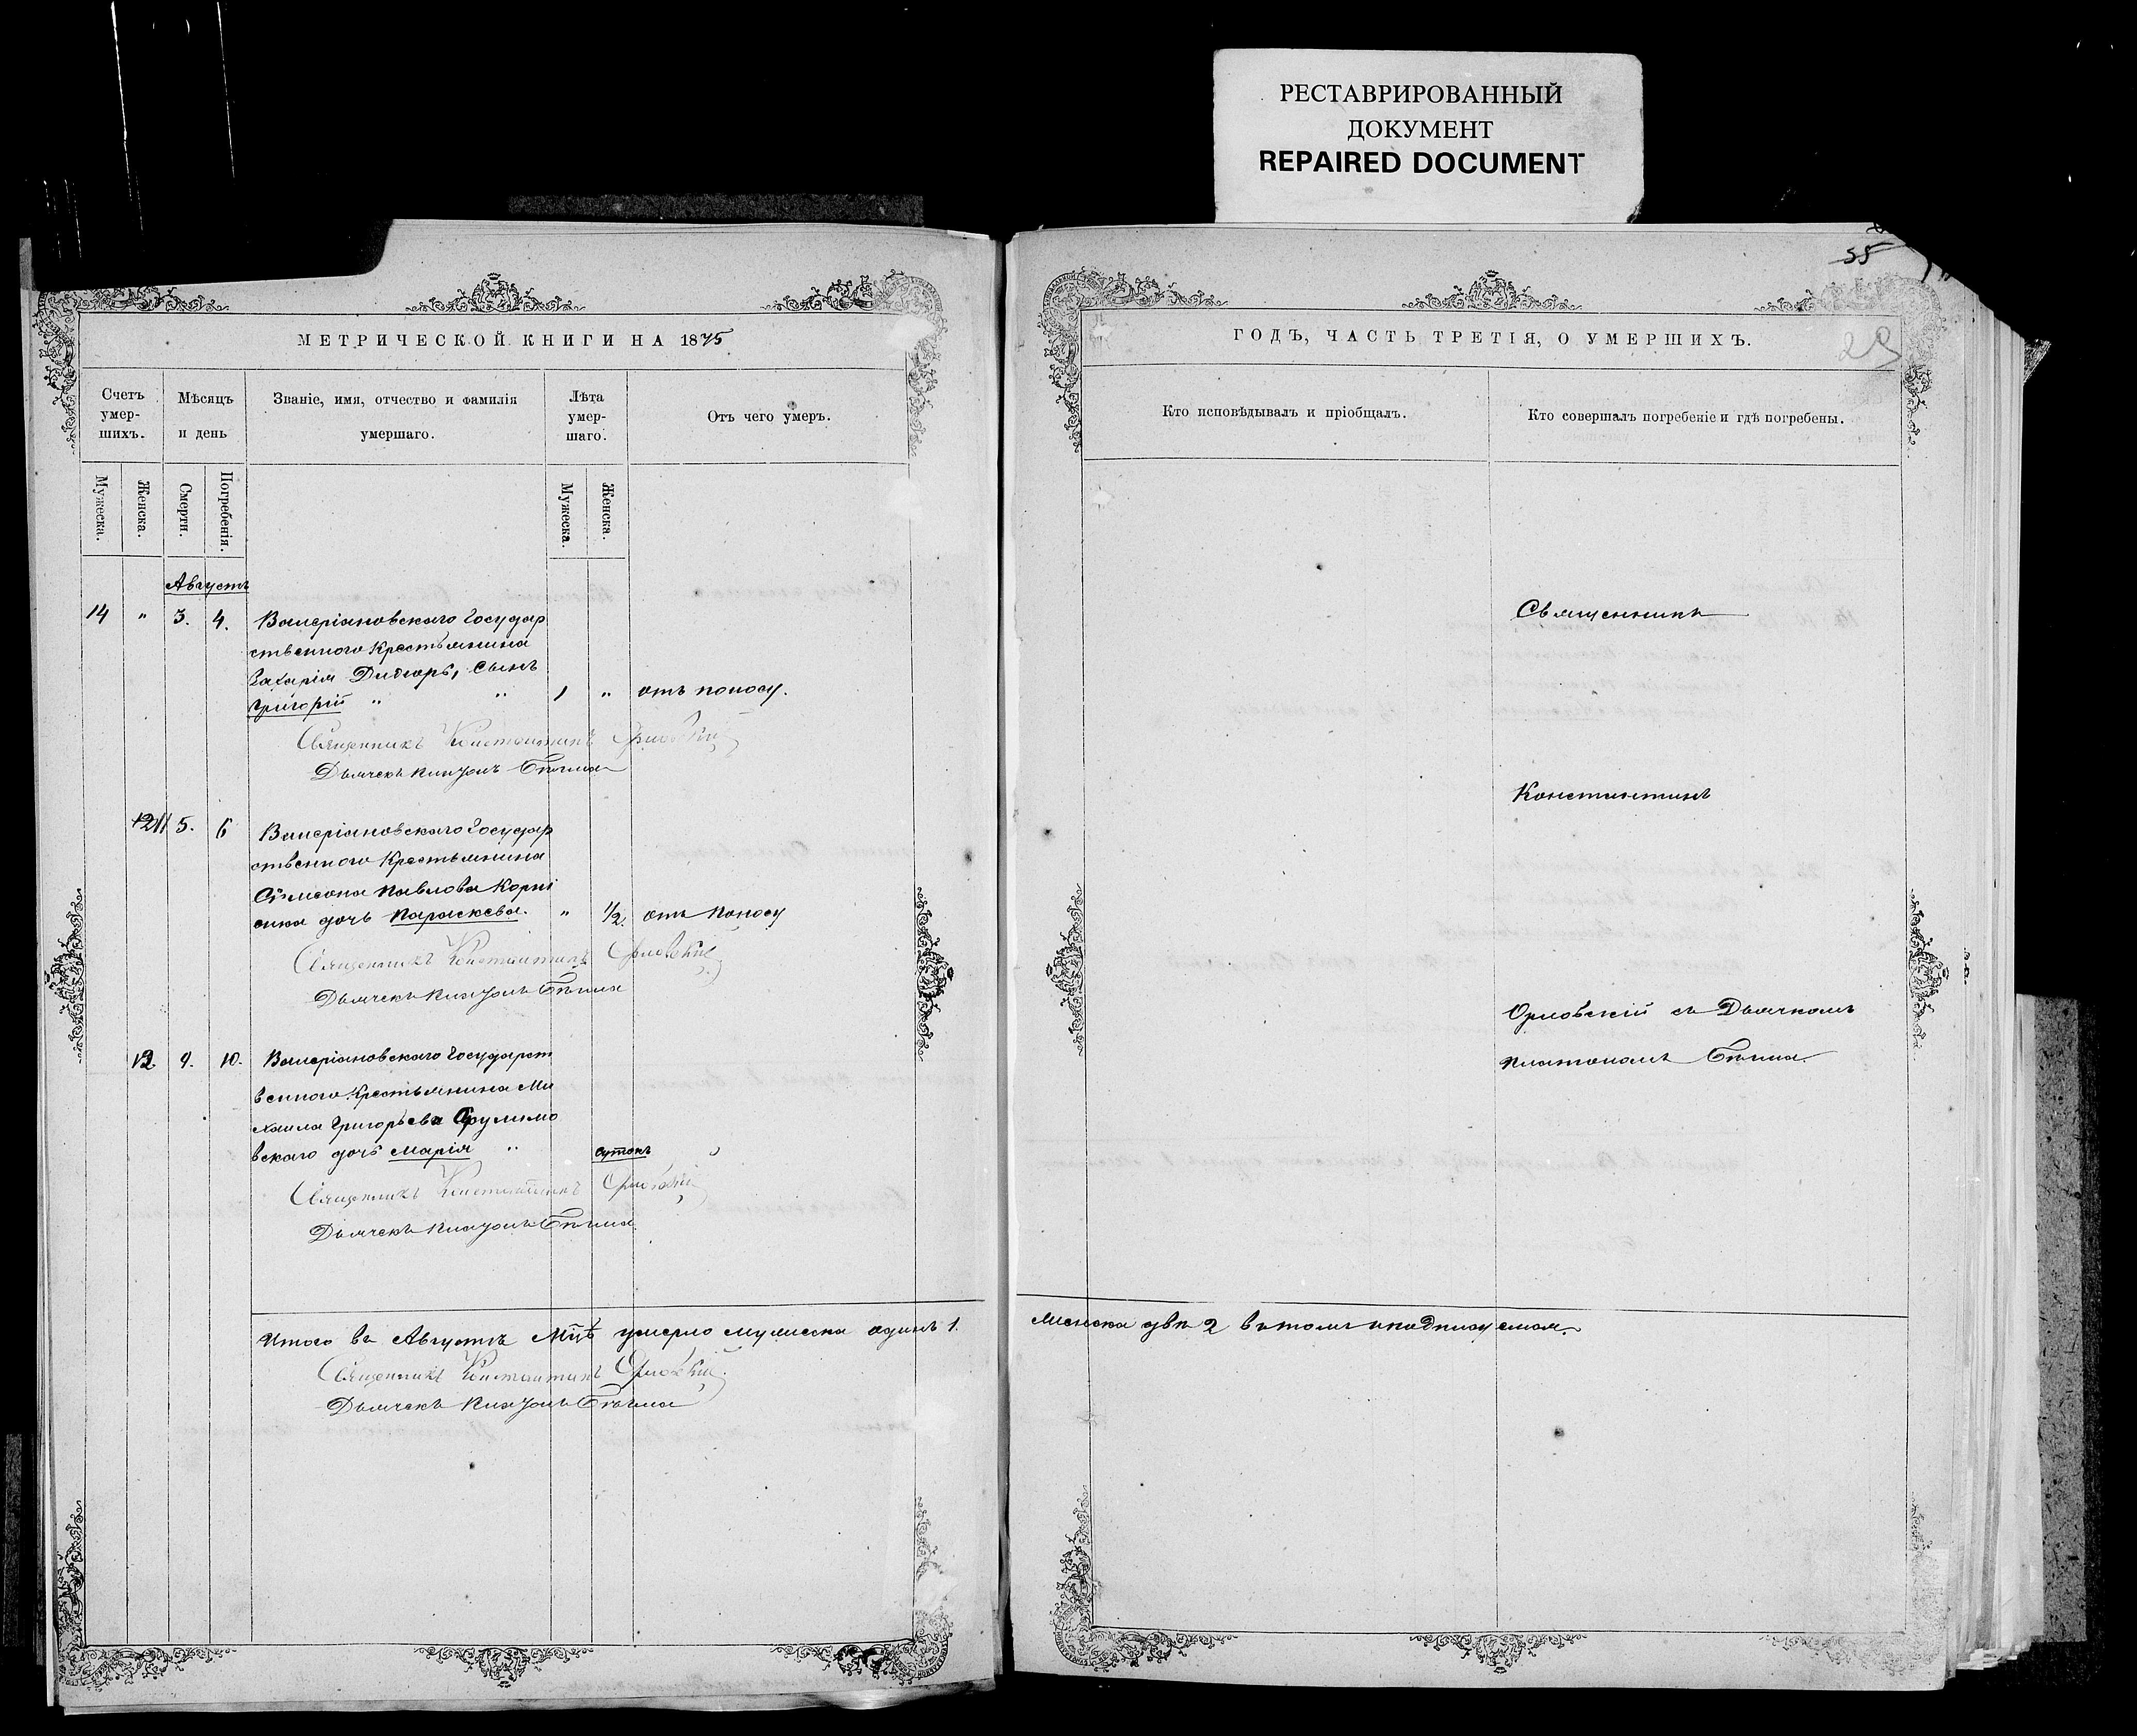 РЕСТАВРИРОВАННЫЙ
ДОКУМЕНТ
REPAIRED DOCUMENT
МЕТРИЧЕСКОЙ КНИГИ НА 1875
Счетъ умер-шихъ.
Мѣсяцъ и день
Званіе, имя, отчество и фамилія умершаго.
Лѣта умер-шаго.
Отъ чего умеръ.
Мужеска.
Женска.
Смерти.
Погребенія.
Мужеска.
Женска.
Августъ
14 " 3. 4. Валеріановскаго Государ
ственного Крестьянина
Захарія сынъ
Григорій " " 1 " отъ поносу.
Священникъ Константинъ Орловскій
Дьячекъ Платонъ
11 5. 6 Валеріановскаго Государ
ственного Крестьянина
Симеона Павлова
дочь Параскева. " 1/2. отъ поносу
Священникъ Константинъ Орловскій
Дьячекъ Платонъ
12 9. 10. Валеріановскаго Государст
венного Крестьянина Ми
хаила Григорьева
вскаго дочь Марія " сутокъ "
Священникъ Константинъ Орловскій
Дьячекъ Платонъ
Итого въ Августѣ М-цѣ умерло мужеска одинъ 1.
Священникъ Константинъ Орловскій
Дьячекъ Платонъ
55
29
ГОДЪ, ЧАСТЬ ТРЕТІЯ, О УМЕРШИХЪ.
Кто исповѣдывалъ и пріобщалъ.
Кто совершалъ погребеніе и гдѣ погребены.
Священникъ
Константинъ
Орловскій съ Дьячкомъ
Платономъ
Женска двѣ 2 въ томъ и подписуемся.